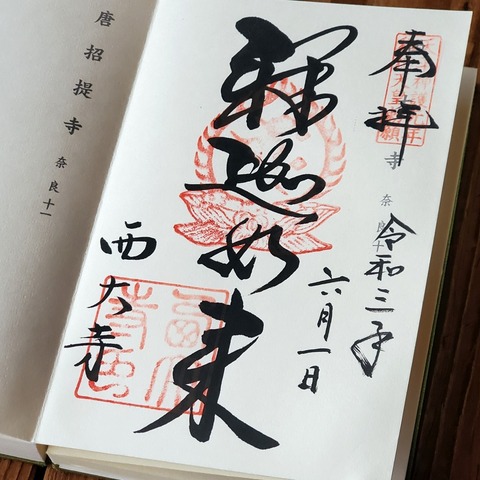 奉拝
寺
奈
令和三年
六月一日
釋迦如来
西大寺
唐招提寺
奈良十一